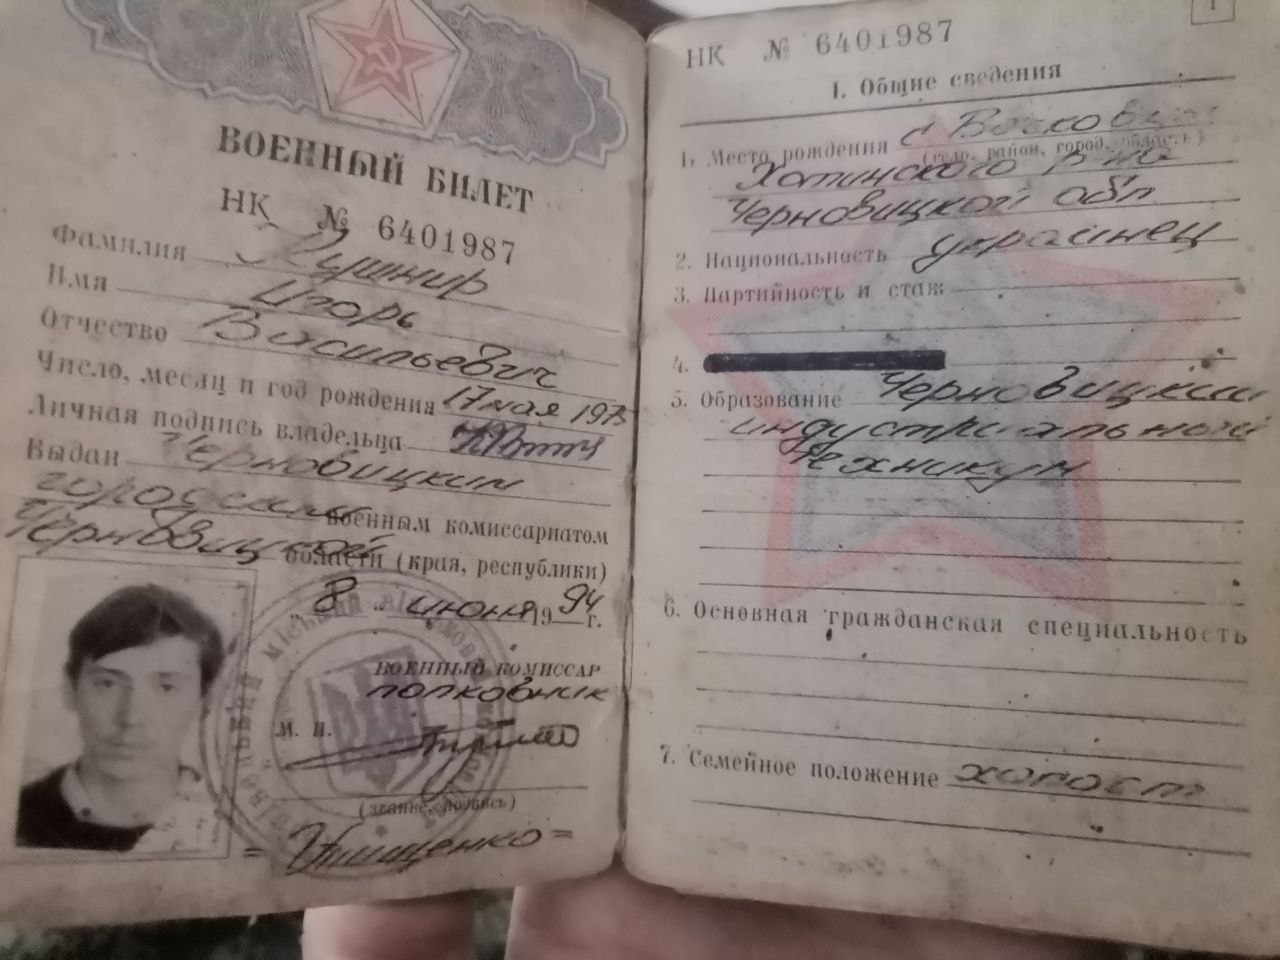 ВОЕННЫЙ БИЛЕТ
НК № 6401987
Фамилия Кушнир
Имя Игорь
Отчество Васильевич
Число, месяц и год рождения 17 мая 1975
Личная подпись владельца
Выдан Черновицким
городским военным комиссариатом
Черновицкой области (края, республики)
8 июня 1994 г.
ВОЕННЫЙ КОМИССАР
полковник
М. П.
(звание, подпись)
1
НК № 6401987
I. Общие сведения
1. Место рождения с
(село, район, город, область)
Хотинского р-на
Черновицкой обл
2. Национальность украинец
3. Партийность и стаж
4.
5. Образование Черновицкий
индустриальный
техникум
6. Основная гражданская специальность
7. Семейное положение холост